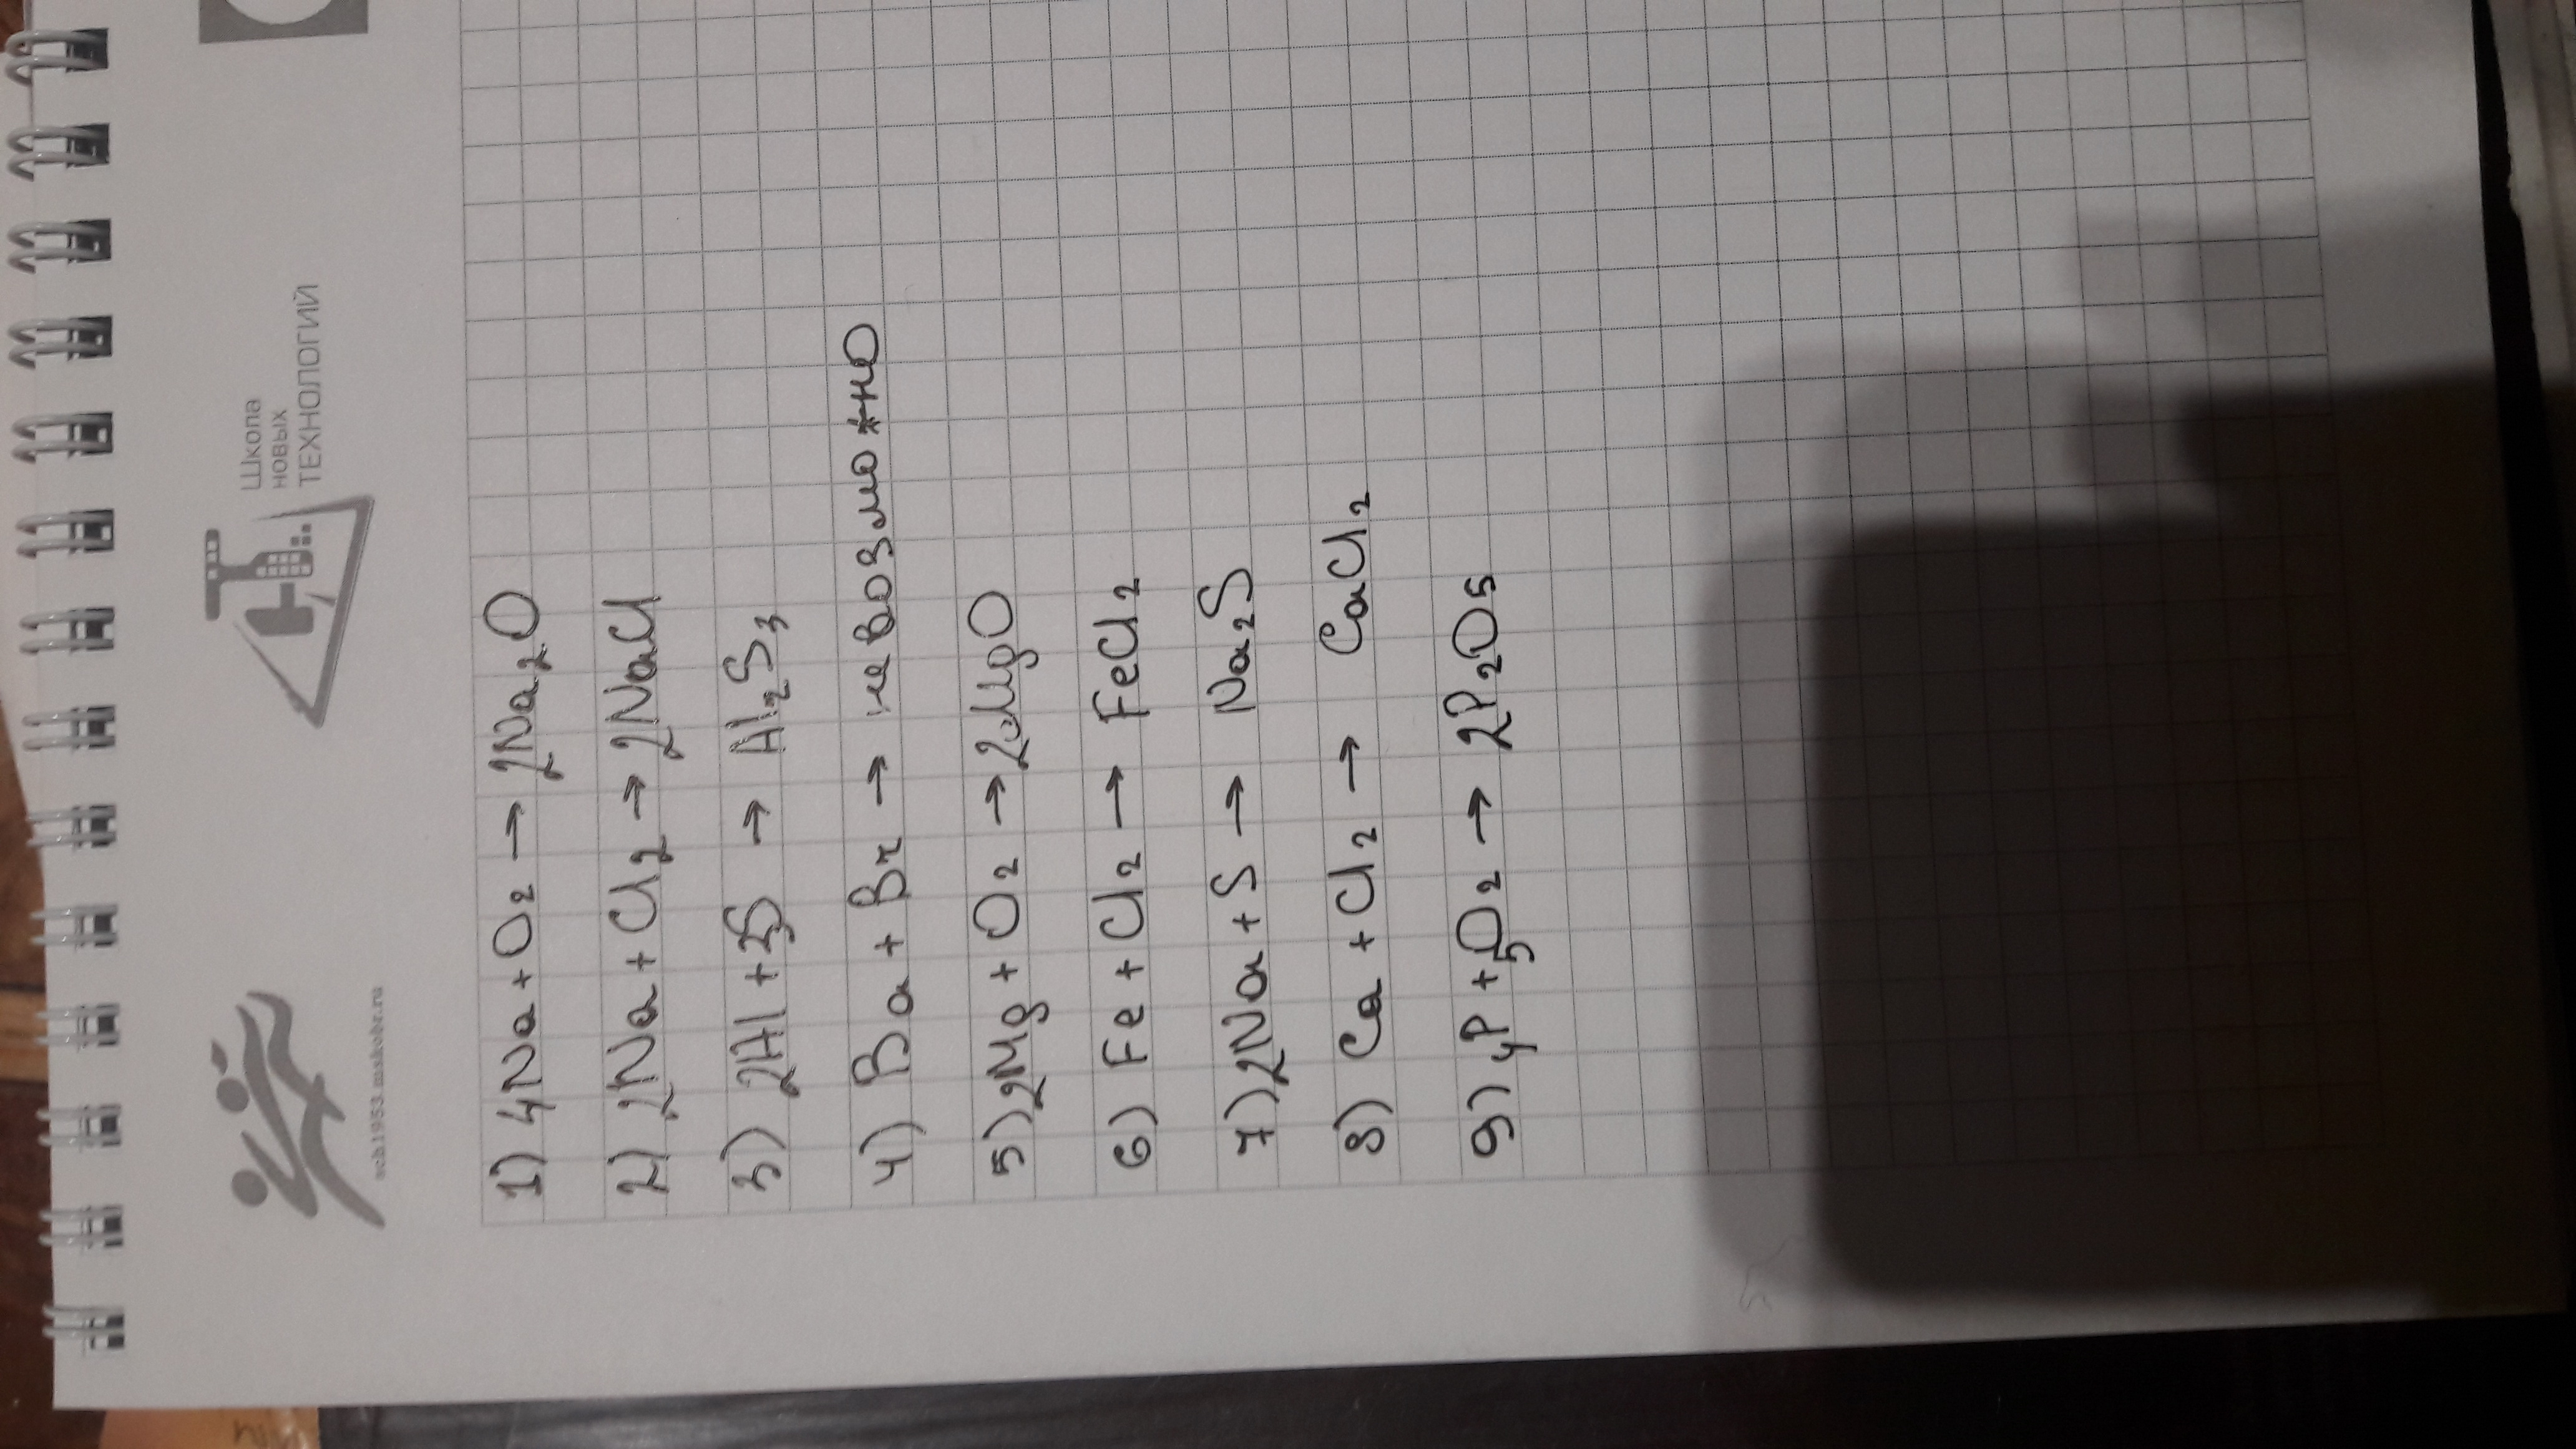 sch1953.mskobr.ru
Школа
НОВЫХ
ТЕХНОЛОГИЙ
1) 4Na + O₂ → 2Na₂O
2) 2Na + Cl₂ → 2NaCl
3) 2Al + 3S → Al₂S₃
4) Ba + Br → невозможно
5) 2Mg + O₂ → 2MgO
6) Fe + Cl₂ → FeCl₂
7) 2Na + S → Na₂S
8) Ca + Cl₂ → CaCl₂
9) 4P + 5O₂ → 2P₂O₅